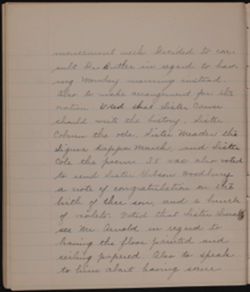 mencement week. Decided to con-
sult Dr. Butler in regard to hav-
ing Monday morning instead.
Also to make arrangement for the
nation. Voted that Sister
should write the history, Sister
Coburn the ode, Sister Meader the
Sigma Kappa March, and Sister
Cole the poem. It was also voted
to send Sister Gibson Woodbury
a note of congratulation on the
birth of her son, and a bunch
of violets. Voted that Sister
see Mr. Arnold in regard to
having the floor painted and
ceiling papered. Also to speak
to him about having some